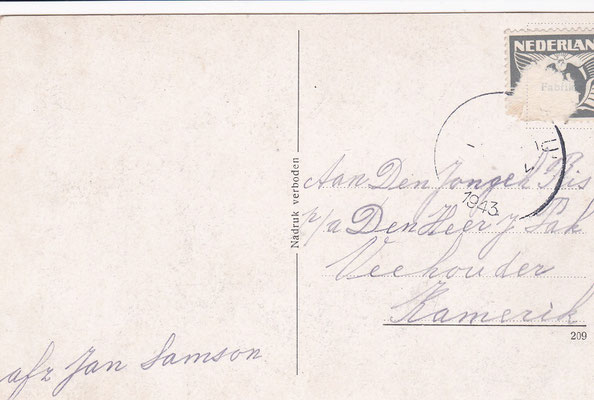 NEDERLAN
Fabrik
1943
Nadruk verboden
Aan Den Jongen Pis
p/a Den Heer J Pak
Veehouder
Kamerik
209
afz Jan Samson